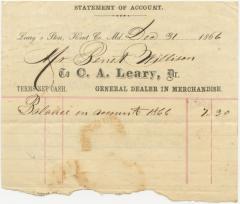 STATEMENT OF ACCOUNT.
Leary's Store, Kent Co. Md. Dec 31 1866
Mr
To C. A. Leary, Dr.
TERMS NET CASH. GENERAL DEALER IN MERCHANDISE.
Balance on account 1866 7.20